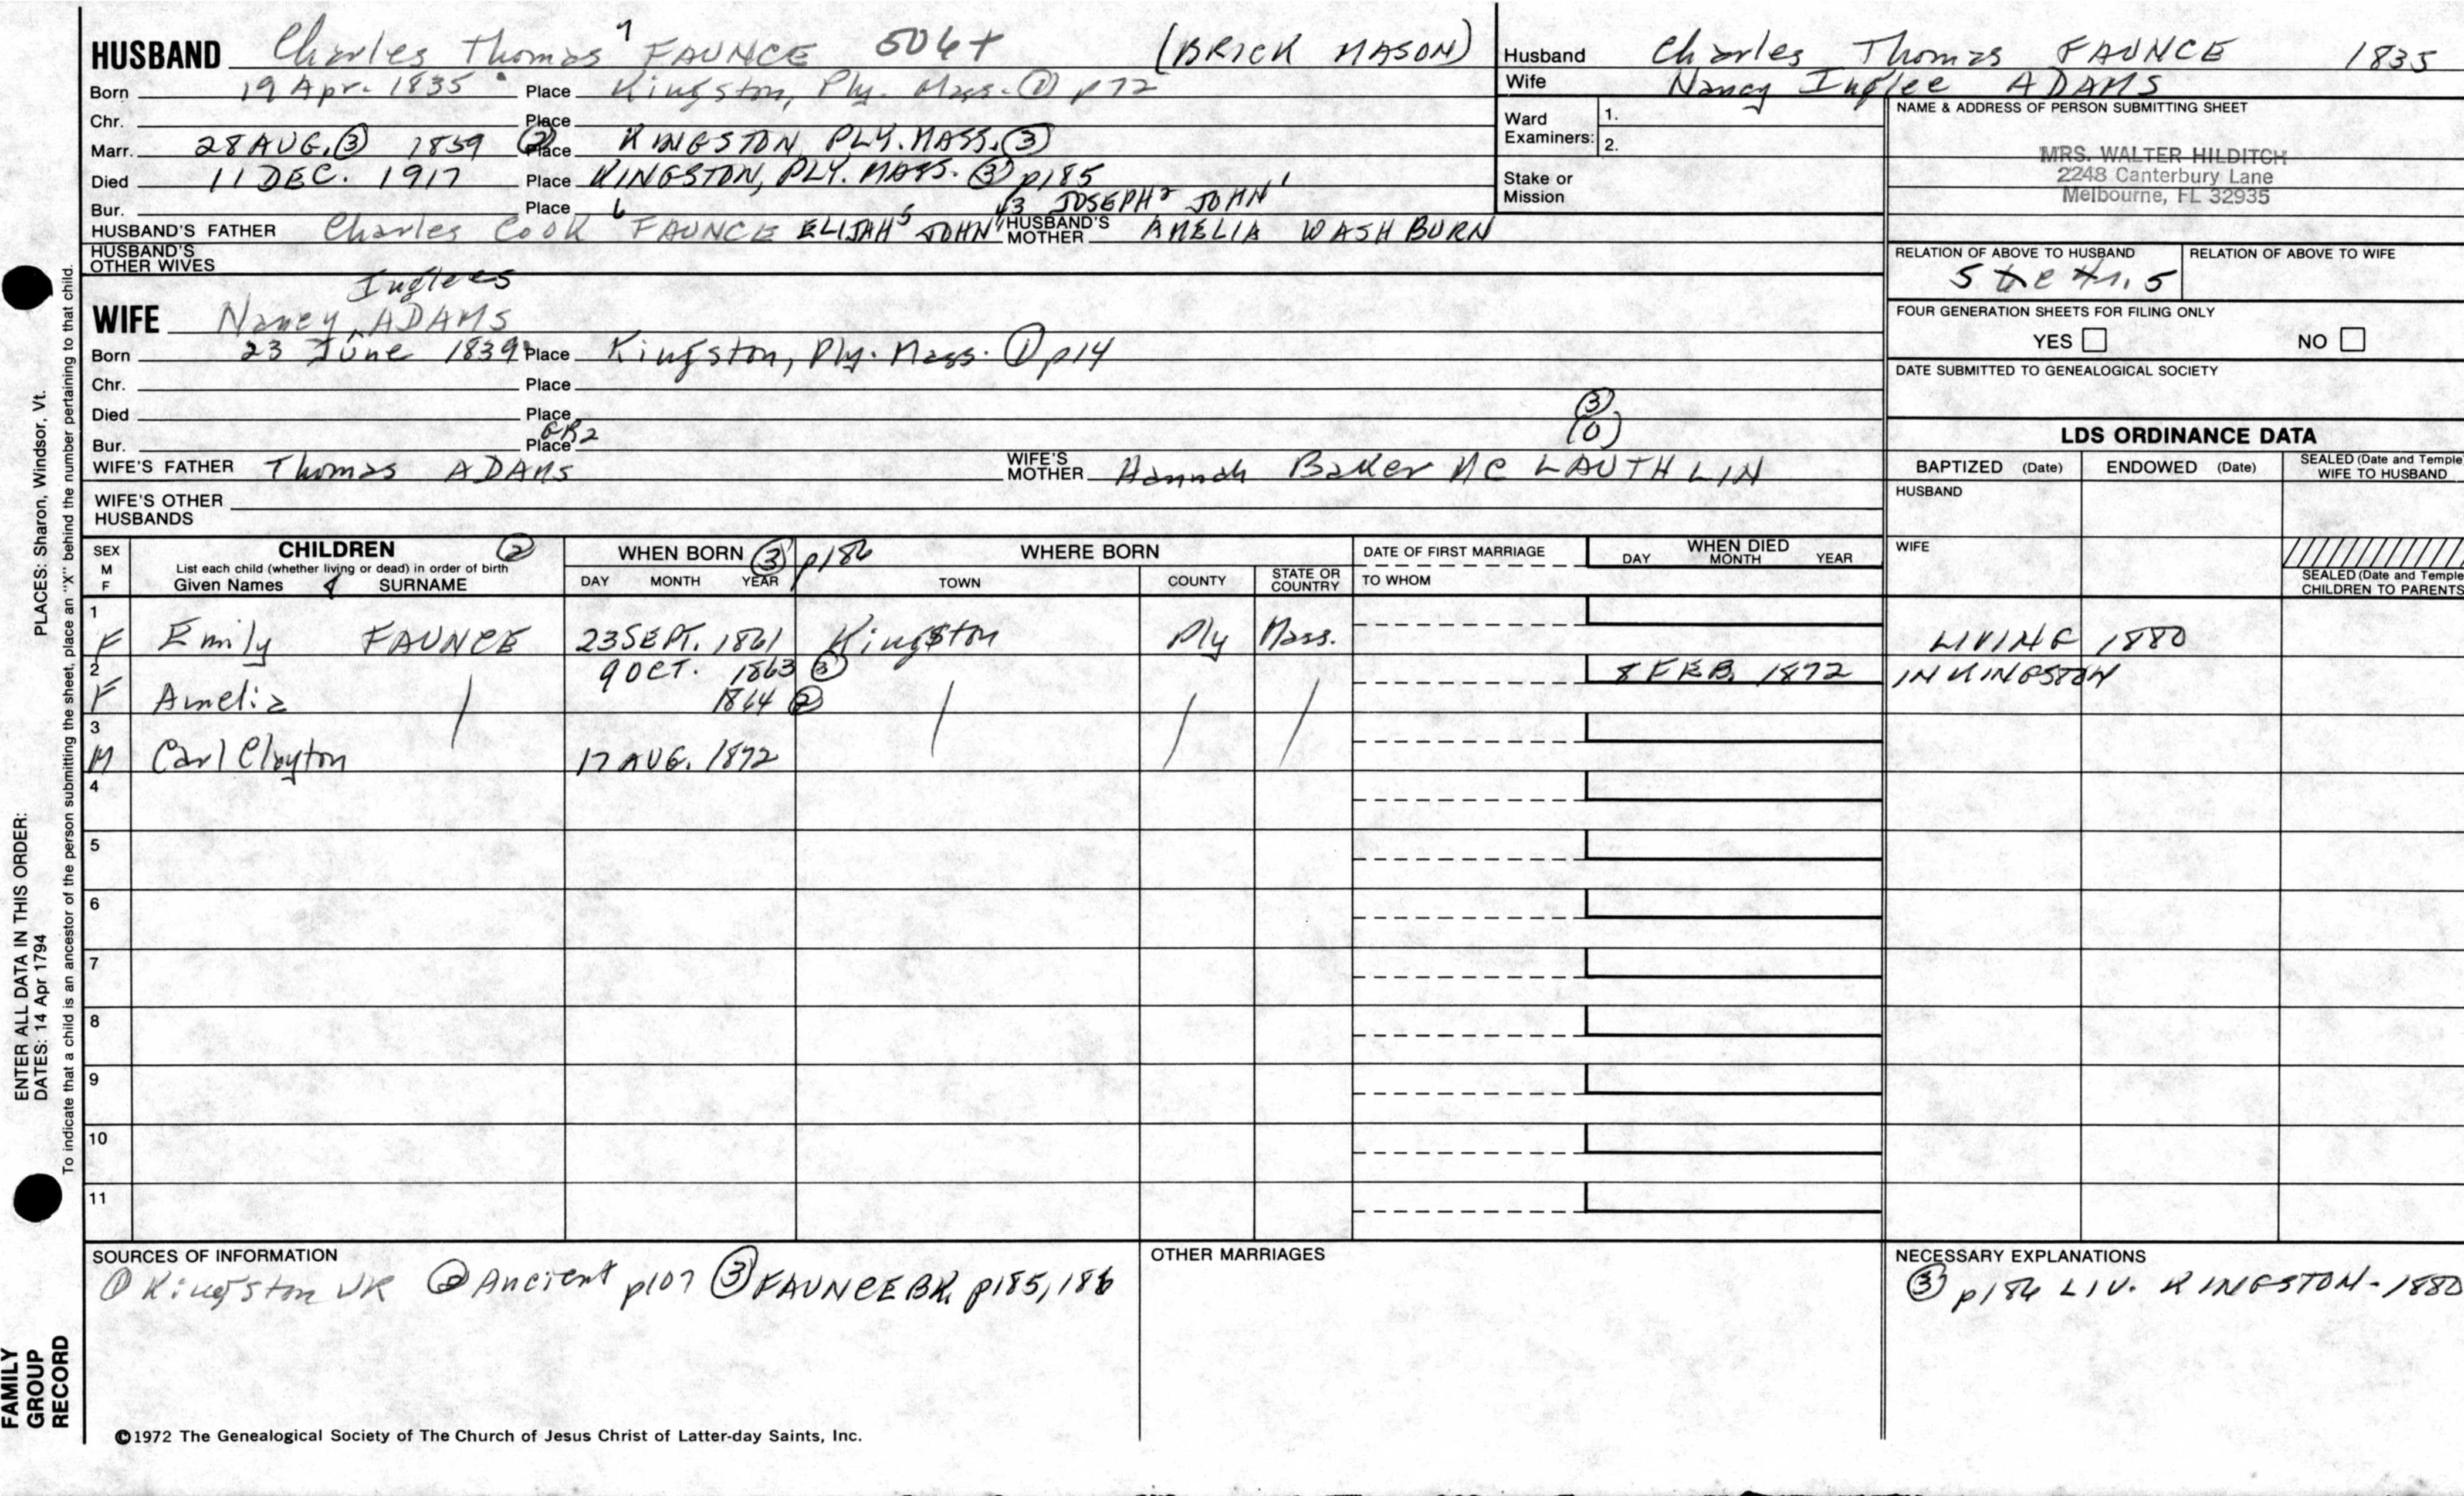 HUSBAND Charles Thomas 7 FAUNCE 506+ (BRICK MASON)
Born 19 Apr. 1835 Place Kingston, Ply. Mass. ① p72
Chr. Place
Marr. 28 AUG. ③ 1859 ② Place KINGSTON, PLY. MASS. ③
Died 11 DEC. 1917 Place KINGSTON, PLY. MASS. ③ p185
Bur. Place 6 3 JOSEPH 2 JOHN 1
HUSBAND'S FATHER Charles Cook FAUNCE ELIJAH 5 JOHN 4 HUSBAND'S MOTHER AMELIA WASHBURN
HUSBAND'S OTHER WIVES
Inglees
WIFE Nancy ^ ADAMS
Born 23 June 1839 Place Kingston, Ply. Mass. ① p14
Chr. Place
Died Place
Bur. Place GR2
③
(0)
WIFE'S FATHER Thomas ADAMS WIFE'S MOTHER Hannah Baker Mc LAUTHLIN
WIFE'S OTHER HUSBANDS
Husband Charles Thomas FAUNCE 1835
Wife Nancy Inglee ADAMS
Ward Examiners: 1.
2.
Stake or Mission
NAME & ADDRESS OF PERSON SUBMITTING SHEET
MRS. WALTER HILDITCH
2248 Canterbury Lane
Melbourne, FL 32935
RELATION OF ABOVE TO HUSBAND RELATION OF ABOVE TO WIFE
FOUR GENERATION SHEETS FOR FILING ONLY
YES NO
DATE SUBMITTED TO GENEALOGICAL SOCIETY
LDS ORDINANCE DATA
BAPTIZED (Date) ENDOWED (Date) SEALED (Date and Temple) WIFE TO HUSBAND
HUSBAND
WIFE
SEALED (Date and Temple) CHILDREN TO PARENTS
SEX M F CHILDREN ② WHEN BORN ③ p186 WHERE BORN DATE OF FIRST MARRIAGE WHEN DIED
List each child (whether living or dead) in order of birth
Given Names SURNAME DAY MONTH YEAR TOWN COUNTY STATE OR COUNTRY TO WHOM DAY MONTH YEAR
1
F Emily FAUNCE 23 SEPT. 1861 Kingston Ply Mass. LIVING 1880
2 9 OCT. 1863 ③ 8 FEB. 1872 IN KINGSTON
F Amelia 1864 ②
3
M Carl Clayton 17 AUG. 1872
4
5
6
7
8
9
10
11
SOURCES OF INFORMATION
① Kingston VR ② Ancient p107 ③ FAUNCE BK. p185, 186
OTHER MARRIAGES
NECESSARY EXPLANATIONS
③ p186 LIV. KINGSTON - 1880
©1972 The Genealogical Society of The Church of Jesus Christ of Latter-day Saints, Inc.
ENTER ALL DATA IN THIS ORDER:
DATES: 14 Apr 1794 PLACES: Sharon, Windsor, Vt.
To indicate that a child is an ancestor of the person submitting the sheet, place an "X" behind the number pertaining to that child.
FAMILY
GROUP
RECORD